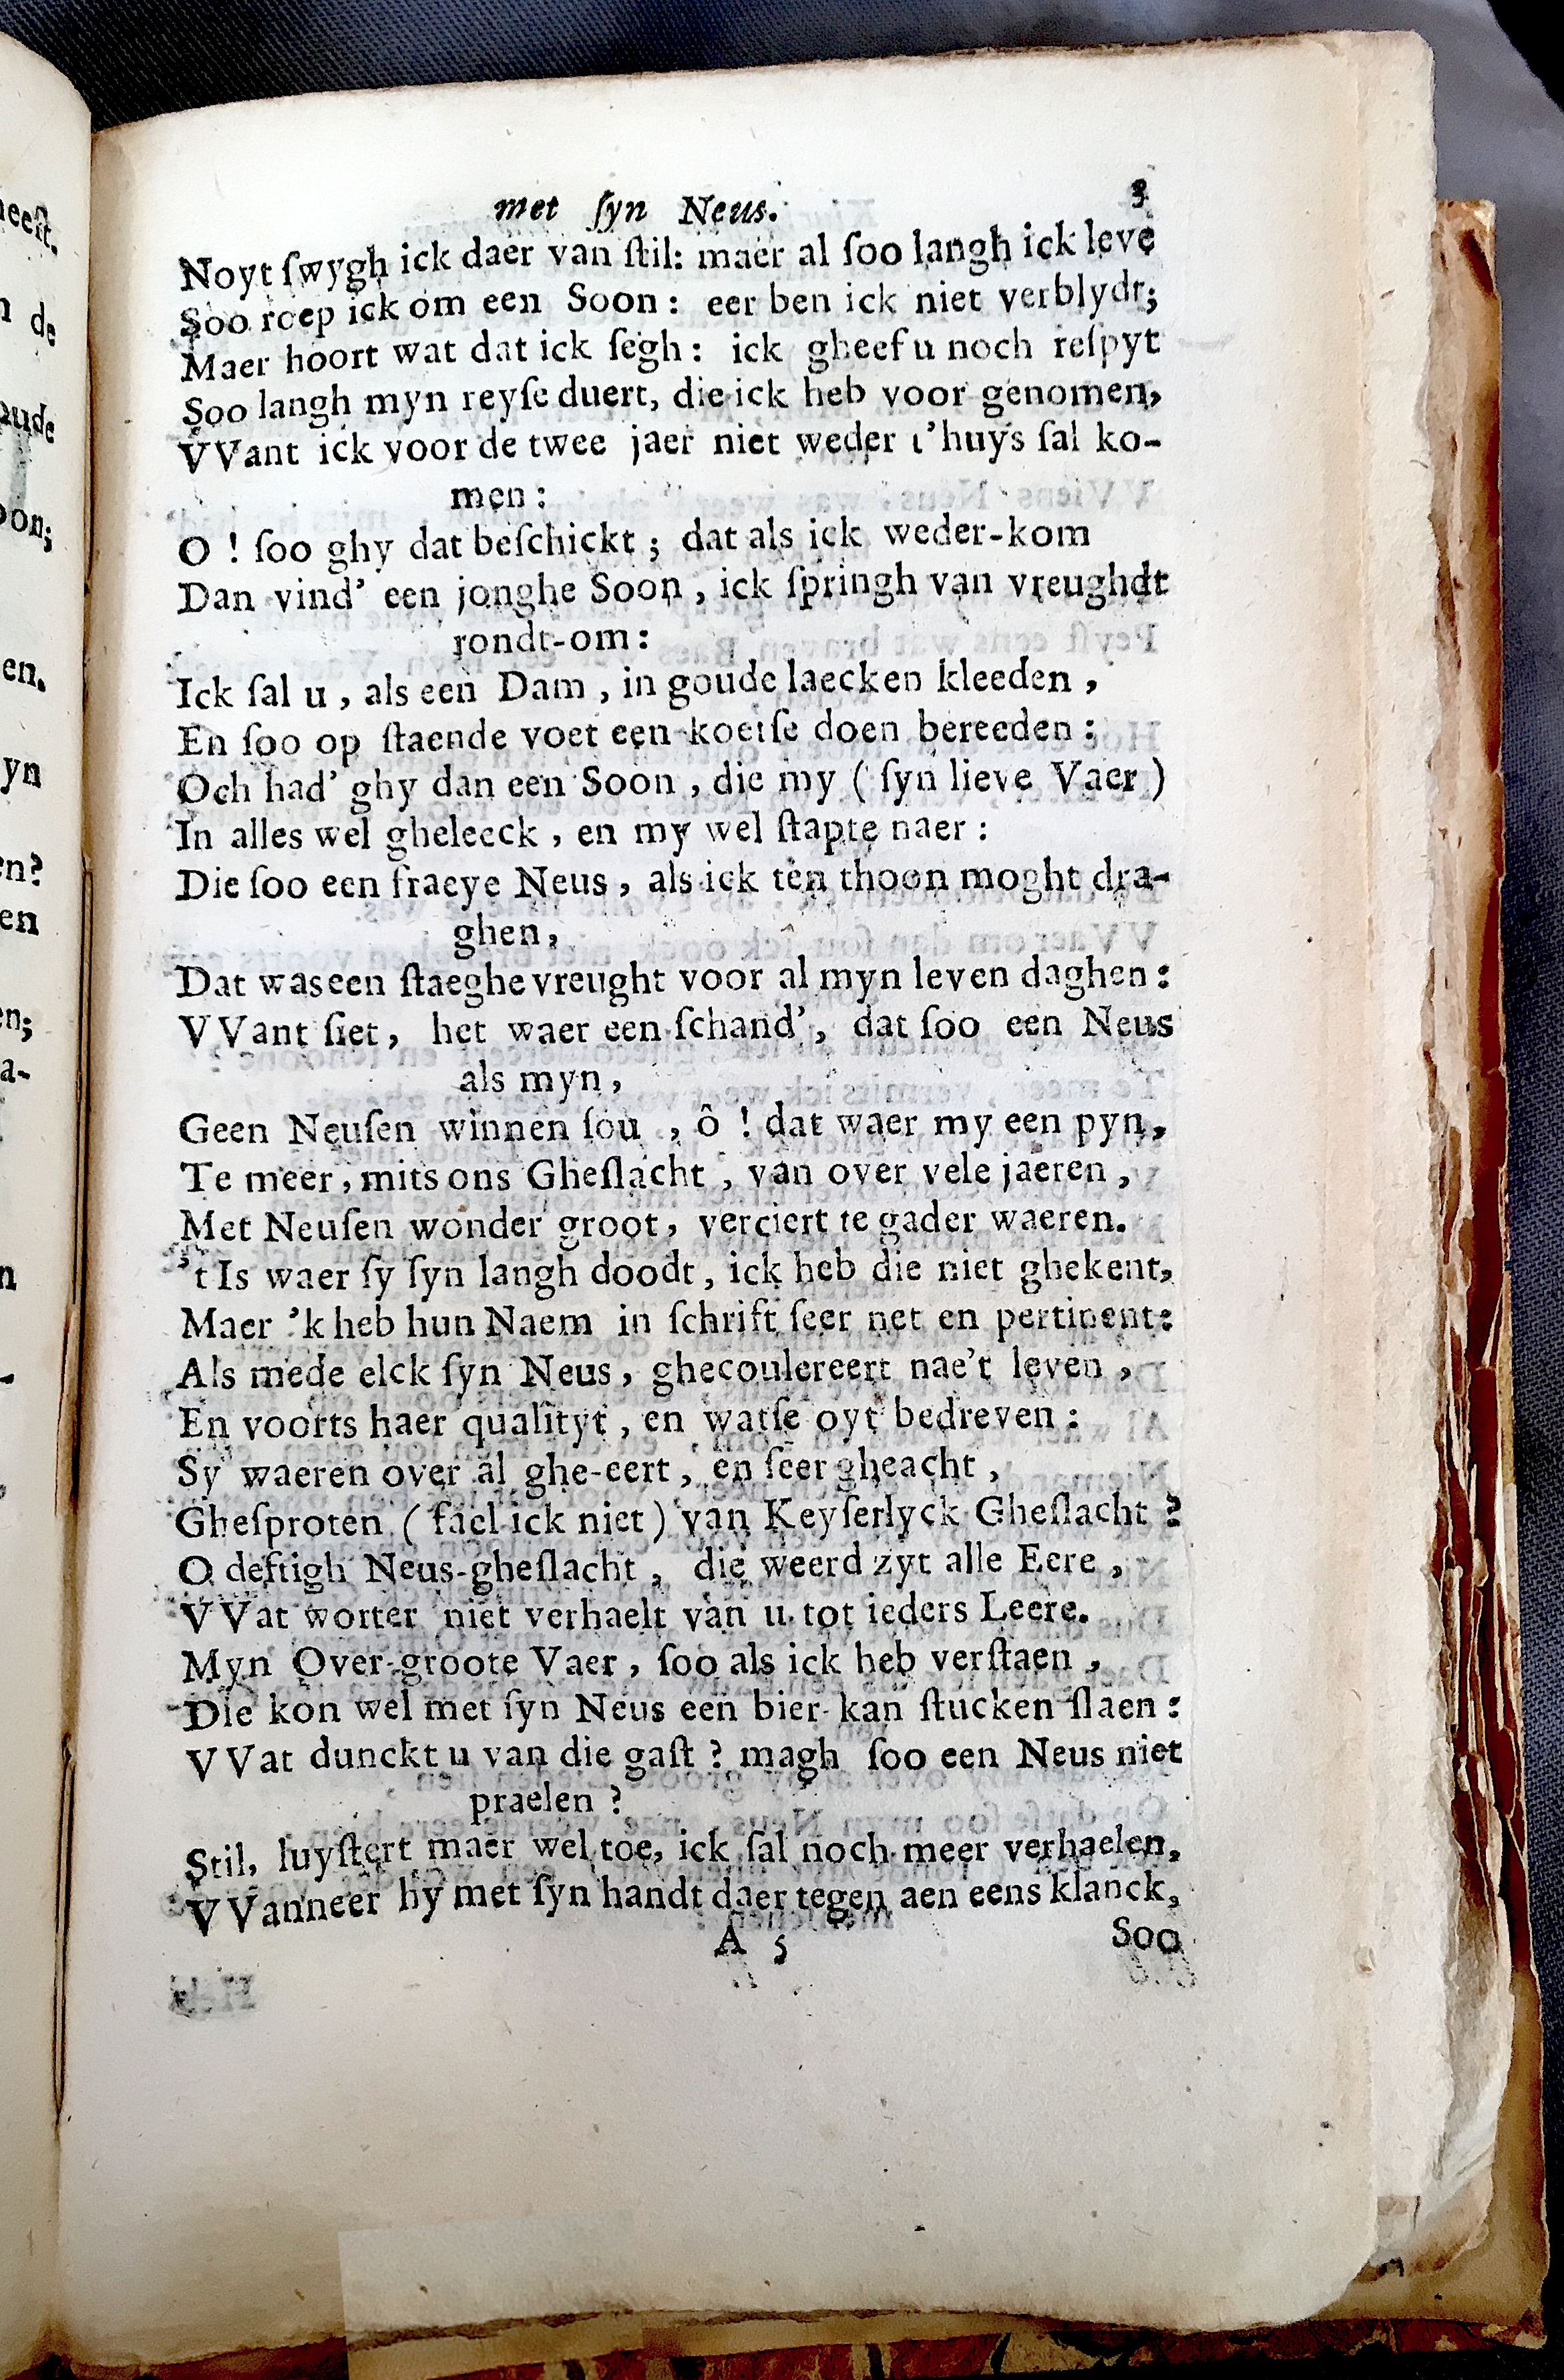 met ſyn Neus. 3
Noyt ſwygh ick daer van ſtil: maer al ſoo langh ick leve
Soo roep ick om een Soon: eer ben ick niet verblydt;
Maer hoort wat dat ick ſegh: ick gheef u noch reſpyt
Soo langh myn reyſe duert, die ick heb voor genomen,
VVant ick voor de twee jaer niet weder t'huys ſal ko-
men:
O! ſoo ghy dat beſchickt; dat als ick weder-kom
Dan vind' een jonghe Soon, ick ſpringh van vreughdt
rondt-om:
Ick ſal u, als een Dam, in goude laecken kleeden,
En ſoo op ſtaende voet een koetſe doen bereeden:
Och had' ghy dan een Soon, die my (ſyn lieve Vaer)
In alles wel gheleeck, en my wel ſtapte naer:
Die ſoo een fraeye Neus, als ick ten thoon moght dra-
ghen,
Dat was een ſtaeghe vreught voor al myn leven daghen:
VVant ſiet, het waer een ſchand', dat ſoo een Neus
als myn,
Geen Neuſen winnen ſou, ô! dat waer my een pyn,
Te meer, mits ons Gheſlacht, van over vele jaeren,
Met Neuſen wonder groot, verciert te gader waeren.
't Is waer ſy ſyn langh doodt, ick heb die niet ghekent,
Maer 'k heb hun Naem in ſchrift ſeer net en pertinent:
Als mede elck ſyn Neus, ghecoulereert nae't leven,
En voorts haer qualityt, en watſe oyt bedreven:
Sy waeren over al ghe-eert, en ſeer gheacht,
Gheſproten (fael ick niet) van Keyſerlyck Gheſlacht?
O deftigh Neus-gheſlacht, die weerd zyt alle Eere,
VVat worter niet verhaelt van u tot ieders Leere.
Myn Over-groote Vaer, ſoo als ick heb verſtaen,
Die kon wel met ſyn Neus een bier-kan ſtucken ſlaen:
VVat dunckt u van die gaſt? magh ſoo een Neus niet
praelen?
Stil, luyſtert maer wel toe, ick ſal noch meer verhaelen,
VVanneer hy met ſyn handt daer tegen aen eens klanck,
A 5 Soo